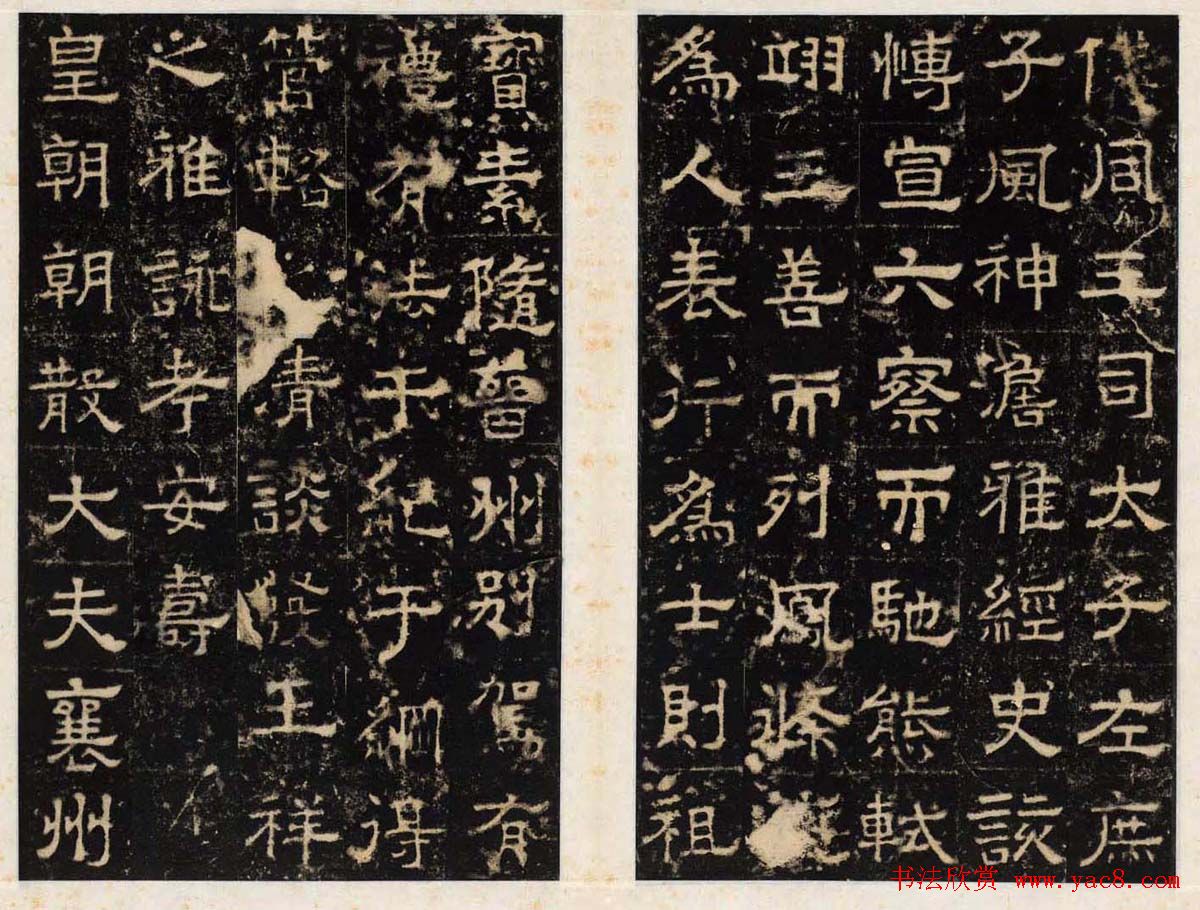 儀同三司太子左庶
子風神澹雅經史該
慱宣六察而馳態軾
翊三善而列鳳條
為人表行為士則祖
寶素隨晉州別駕有
禮有法于紀于綱得
管輅清談發王祥
之雅詠考安壽
皇朝朝散大夫襄州
书法欣赏 www.yac8.com